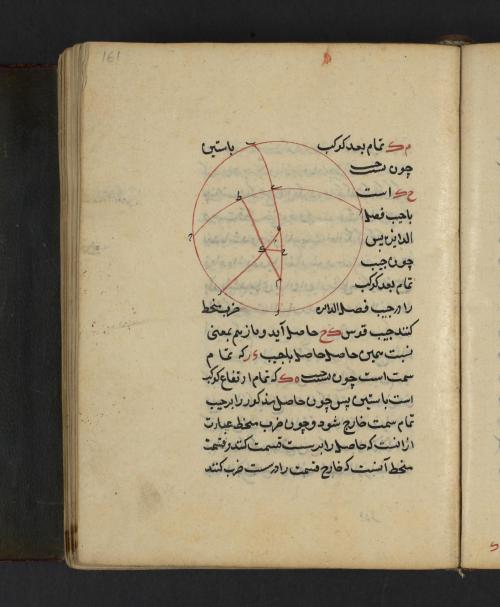 161
م ك تمام بعد کوکب باستین
چون نسبت جیب
ح ك است
با جیب فصل
الدایر پس
چون جیب
تمام بعد کوکب
را در جیب فصل الدایر ضرب منحط
کنند جیب قوس ك ح حاصل آید و باز بهم بمعنی
نسبت همین حاصل حاصل با جیب که تمام
سمت است چون نسبت جیب ه ك که تمام ارتفاع کوکب
است باستین پس چون حاصل مذکور را بر جیب
تمام سمت خارج شود و چون ضرب منحط عبارت
ازانست که حاصل را بر ست قسمت کنند و قسمت
منحط آنست که خارج قسمت را در ست ضرب کنند